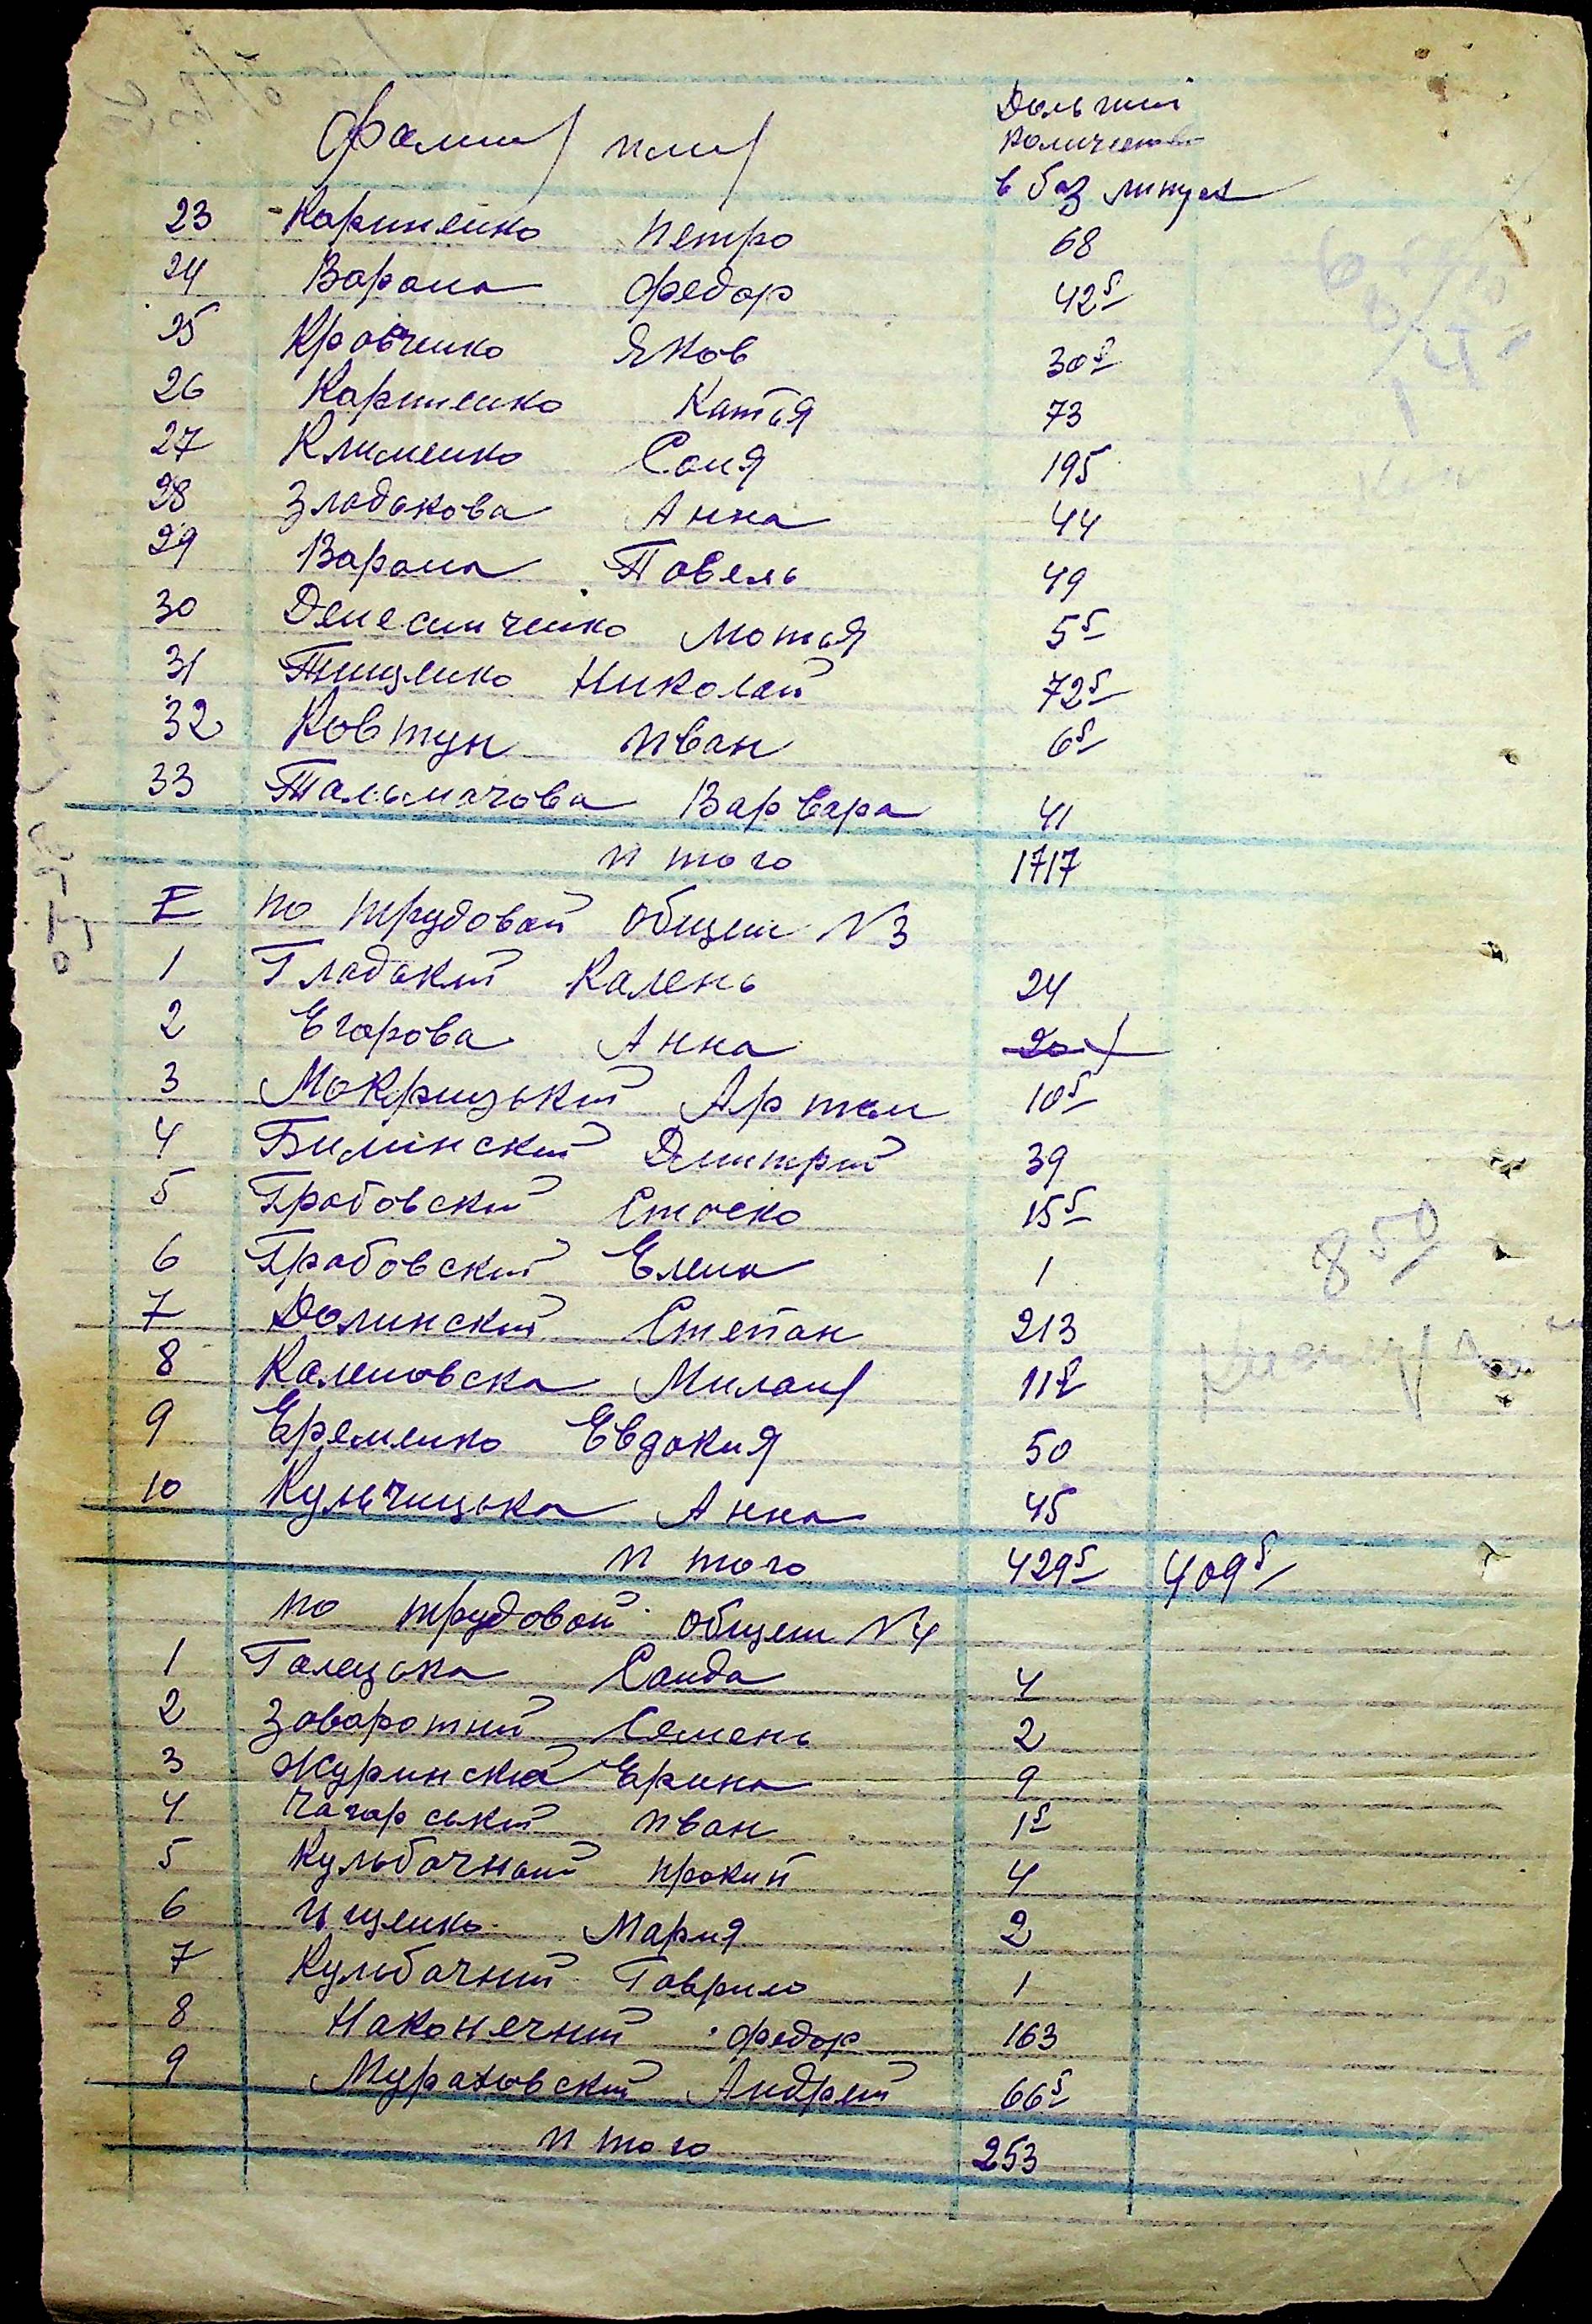 Фамил имя
Дольжни
количество
в баз
23 Карпиенко Петро 68
24 Варона Федор 42 5
25 Кравченко Яков 30 5
26 Карпиенко Катья 73
27 Клименко Соня 195
28 Зладакова Анна 44
29 Варона Повель 49
30 Мотья 5 5
31 Тищенко Николай 72 5
32 Ковтун Иван 6 5
33 Тальмачова Варвара 41
Итого 1717
по трудовой общени N 3
1 Гладький Калень 24
2 Егорова Анна 20
3 Мокрицький Артем 10 5
4 Билинский Дмитрий 39
5 Грабовский Стаско 15 5
6 Грабовский Елена 1
7 Долинский Степан 213
8 Каленовска Милан 11 5
9 Еременко Евдокия 50
10 Кульчицька Анна 45
Итого 429 5 409 5
по трудовой общени N 4
1 Галецька Санда 4
2 Заваротний Семень 2
3 Журинская Ерина 9
4 Чагарський Иван 1 5
5 Кульбачний Прокип 4
6 Ищенко Мария 2
7 Кульбачний Гаврило 1
8 Наконечний Федор 163
9 Мураховский Андрей 66 5
Итого 253
8 50